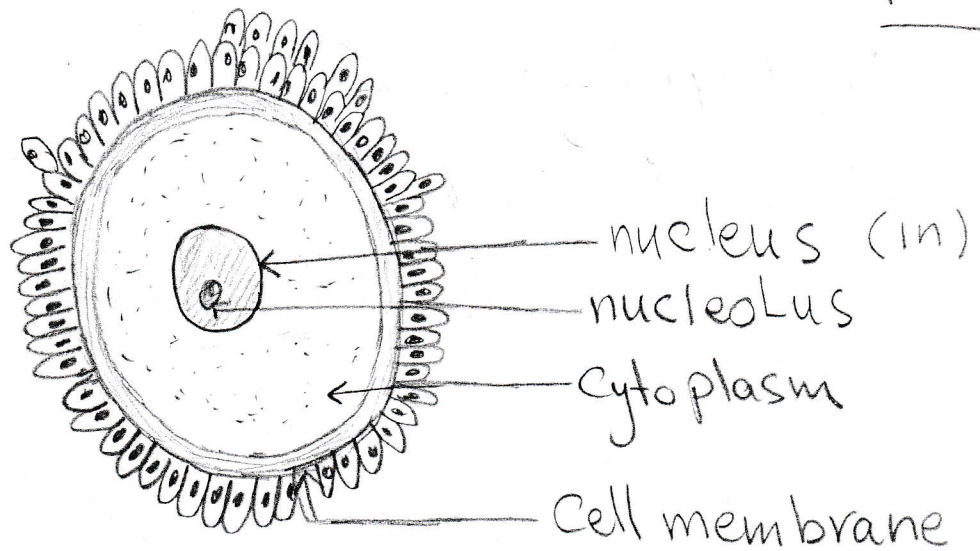 nucleus (in)
nucleoLus
Cytoplasm
Cell membrane